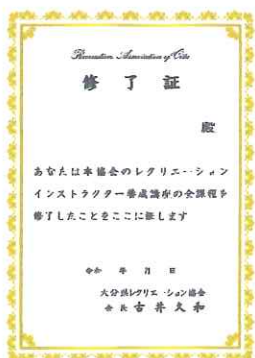 Recreation Association of Oita
修了証
殿
あなたは本協会のレクリエーション
インストラクター養成講座の全課程を
修了したことをここに証します
令和 年 月 日
大分県レクリエーション協会
会長 吉井久和